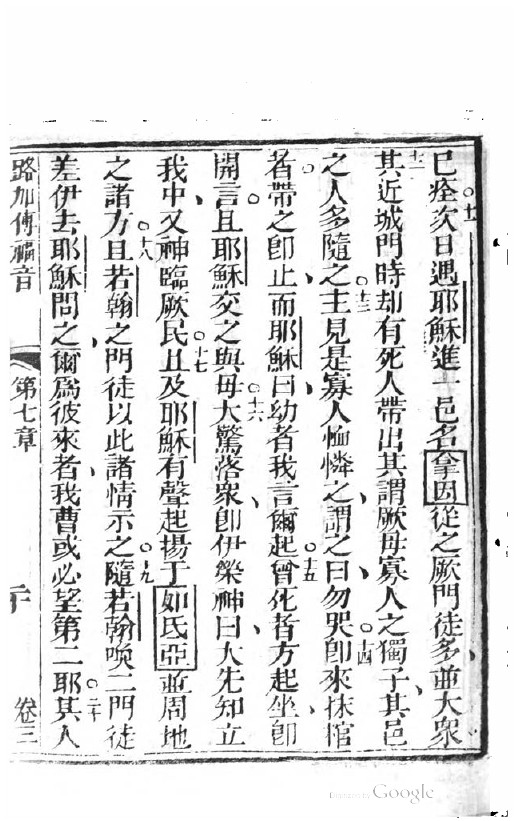 已痊○十一次日遇耶穌進一邑名拿因從之厥門徒多並大眾
十二其近城門時却有死人帶出其謂厥母寡人之獨子其邑
之人多隨之○十三主見是寡人恤憐之謂之曰勿哭○十四即來抹棺
者帶之即止而耶穌曰幼者我言爾起○十五曾死者方起坐即
開言且耶穌交之與母○十六大驚落眾即伊榮神曰大先知立
我中又神臨厥民○十七且及耶穌有聲起揚于如氐亞並周地
之諸方○十八且若翰之門徒以此諸情示之○十九隨若翰喚二門徒
差伊去耶穌問之爾為彼來者我曹或必望第二耶○二十其人
路加傳福音 第七章 二十 卷三
Digitized by Google